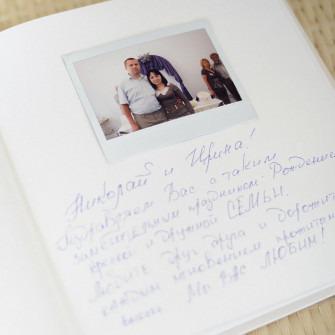 Николай и Ирина!
Поздравляем Вас с таким
замечательным праздником: Рождением
крепкой и дружной СЕМЬИ.
Любите друг друга и дорожите
каждым мгновением
Мы ВАС ЛЮБИМ!